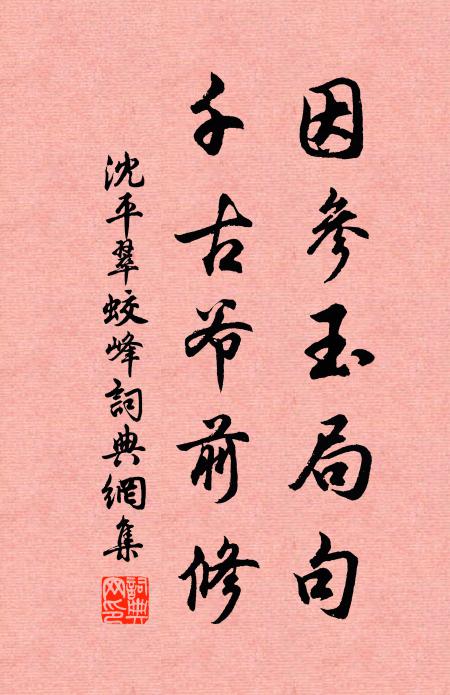 因參玉局句
千古希前修
沈平翠蛟峰詞典網集
詞典网印